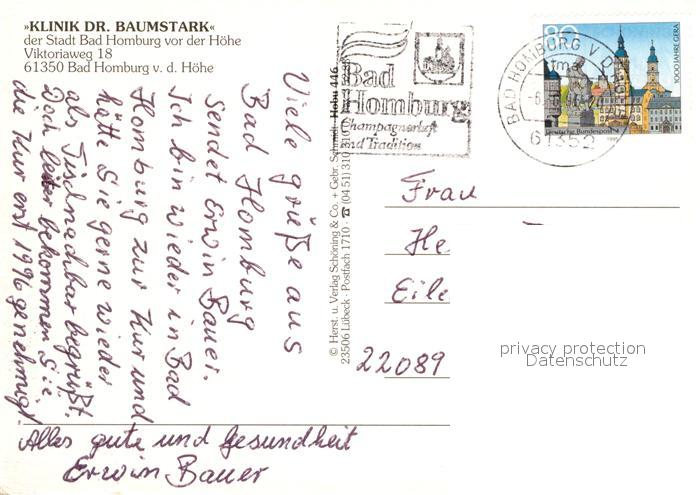 »KLINIK DR. BAUMSTARK«
der Stadt Bad Homburg vor der Höhe
Viktoriaweg 18
61350 Bad Homburg v. d. Höhe
Viele grüße aus
Bad Homburg
sendet Erwin Bauer.
Ich bin wieder in Bad
Homburg zur Kur und
hätte Sie gerne wieder
als Tischnachbar begrüßt.
Doch leider bekommen Sie
die Kur erst 1996 genehmigt.
Alles gute und Gesundheit
Erwin Bauer
© Herst. u. Verlag Schöning & Co. + Gebr. Schmidt
23506 Lübeck · Postfach 1710 · ☎ (04 51) 310
Bad
Homburg
Champagnerluft
und Tradition
BAD HOMBURG V D
61352
80
1000 JAHRE GERA
Deutsche Bundespost
Frau
He
Eile
22089
privacy protection
Datenschutz